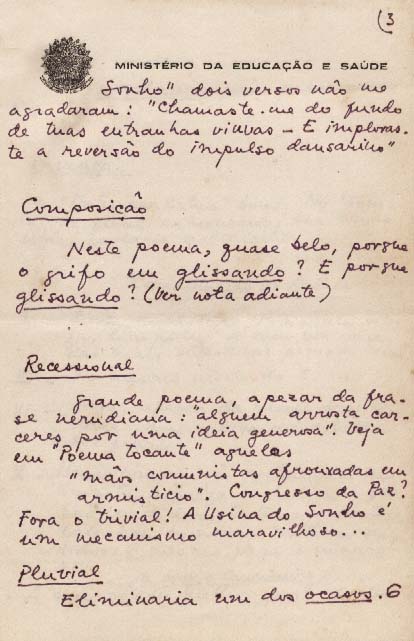 (3
MINISTÉRIO DA EDUCAÇÃO E SAÚDE
Sonho" dois versos não me
agradaram: "Chamaste-me do fundo
de tuas entranhas viuvas - E imploras-
te a reversão do impulso dansarino"
Composição
Neste poema, quase belo, porque
o grifo em glissando? E porque
glissando? (Ver nota adiante)
Recessional
Grande poema, apezar da fra-
se nerudiana: "alguem arrosta car-
ceres por uma ideia generosa". Veja
em "Poema tocante" aquelas
"mãos comunistas afrouxadas em
armisticio". Congresso da Paz?
Fora o trivial! A Usina do Sonho é
um mecanismo maravilhoso...
Pluvial
Eliminaria um dos ocasos. 6